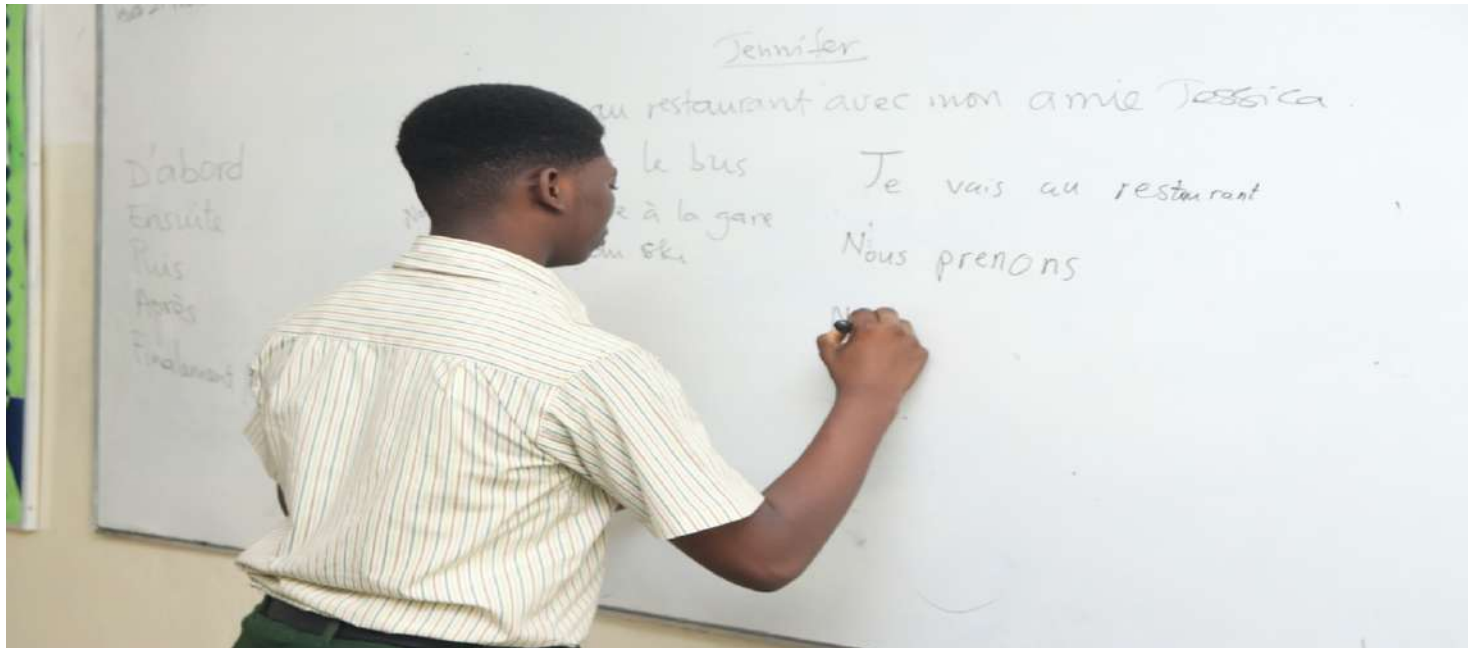 Jennifer
au restaurant avec mon amie Jessica.
D'abord
Ensuite
Puis
Après
Finalement
le bus
à la gare
ski
Je vais au restaurant
Nous prenons